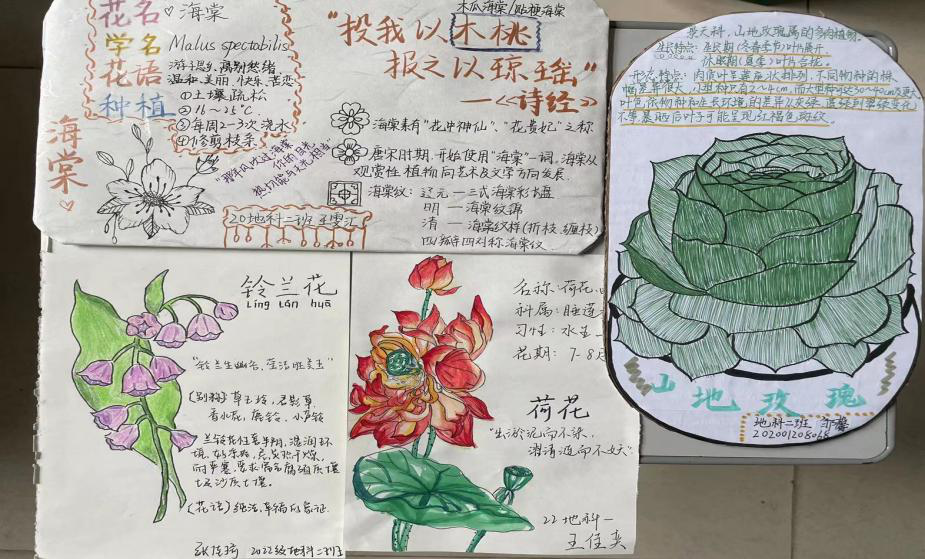 花名 ♡ 海棠
学名 Malus spectabilis
花语 游子思乡、离别愁绪
温和、美丽、快乐、苦恋
种植 ①土壤疏松
②16~25℃
③每周2-3次浇水
④修剪枝条
海棠♡
20地科二班
木瓜海棠/贴梗海棠
"投我以木桃
报之以琼瑶"
—《诗经》
海棠素有"花中神仙"、"花贵妃"之称
唐宋时期,开始使用"海棠"一词。海棠从
观赏性植物向艺术及文学方向发展.
海棠纹: 辽元—三式海棠形古盘
明—海棠纹锦
清—海棠纹样(折枝、缠枝)
四瓣四对称海棠纹
景天科,山地玫瑰属的多肉植物.
生长特点: 生长期(冬春季节)叶片展开.
休眠期(夏季)叶片合拢.
形态特点: 肉质叶呈莲座状排列,不同物种的株
幅差异很大,小型种只有2~4cm,而大型种可达30~40cm及更大
叶色依物种和生长环境的差异从灰绿、蓝绿到翠绿变化
不等,暴晒后叶子可能呈现红褐色斑纹
山地玫瑰
地科二班
铃兰花
líng lán huā
"铃兰生幽谷,
(别称) 草玉玲,君影草
香水花,鹿铃,小芦铃
兰铃花性喜半阴,湿润环
境,好凉爽,忌炎热干燥,
耐严寒,要求富含腐殖质壤
土及沙质土壤。
(花语) 纯洁,幸福的象征.
2022级地科二班
名称:荷花
科属:睡莲
习性:水生
花期:7-8月
荷花
"出淤泥而不染,
濯清涟而不妖"
22地科一
王佳奕